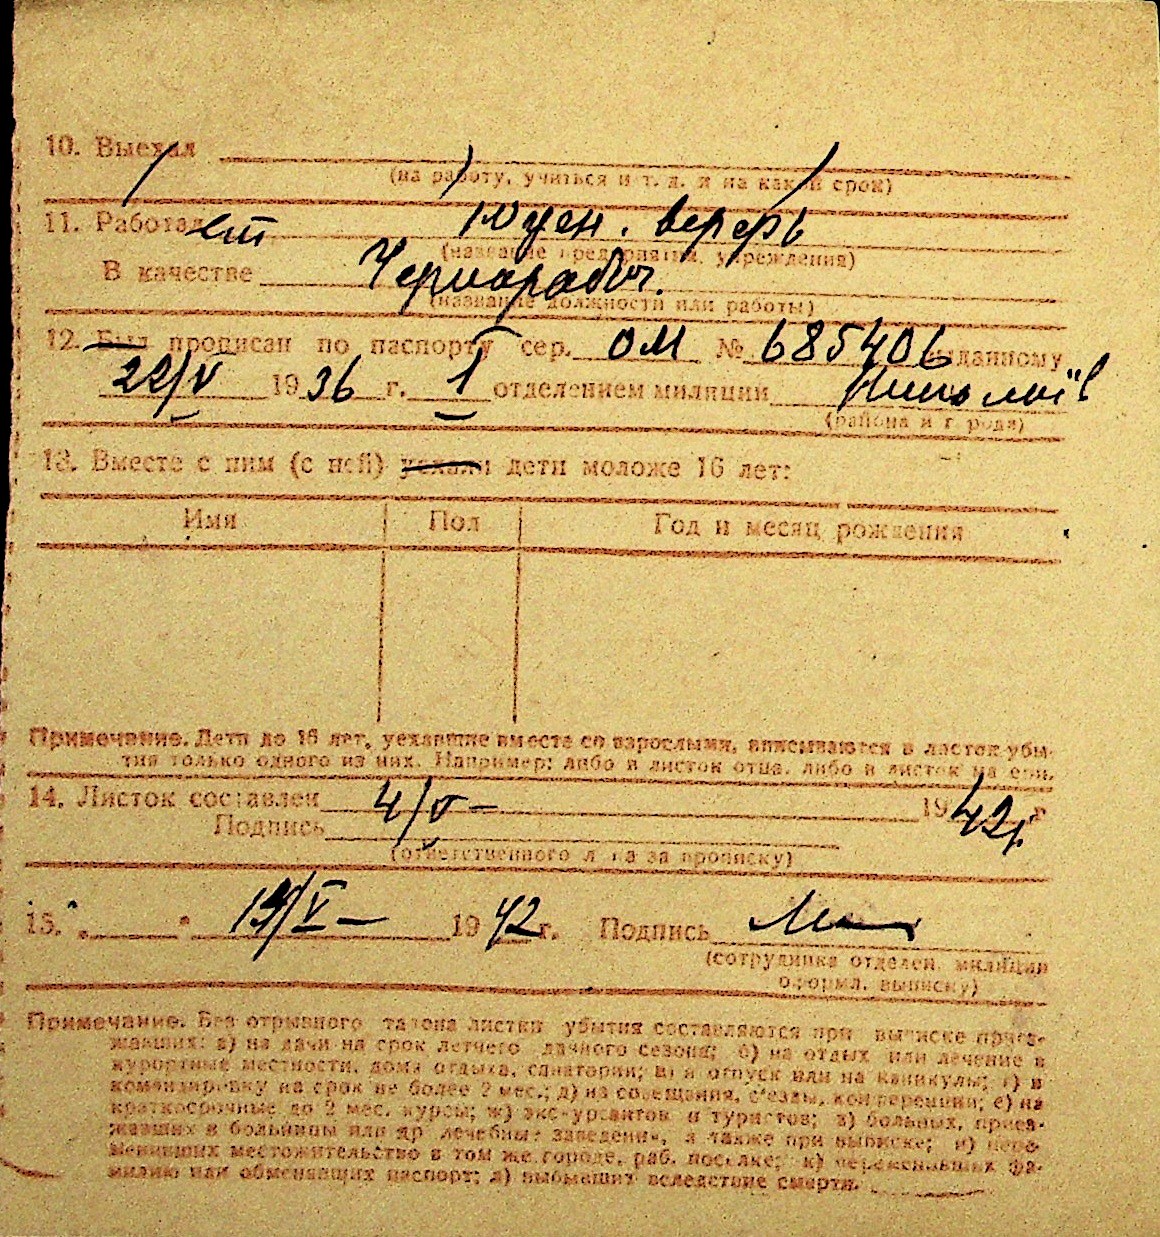 10. Выехал
(на работу, учиться и т. д. и на какой срок)
11. Работает
(название предприятия, учреждения)
В качестве Чернорабоч.
(название должности или работы)
12. Был прописан по паспорту сер. ОМ № 685406 выданному
22/V 1936 г. 1 отделением милиции
(района и города)
13. Вместе с ним (с ней) уехали дети моложе 16 лет:
Имя Пол Год и месяц рождения
Примечание. Дети до 16 лет, уехавшие вместе со взрослыми, вписываются в листок убы-
тия только одного из них. Например: либо в листок отца, либо в листок матери.
14. Листок составлен 4/V- 1942 г.
Подпись
(ответственного лица за прописку)
15. " " 19/V- 1942 г. Подпись
(сотрудника отделен. милиции
оформл. выписку)
Примечание. Без отрывного талона листки убытия составляются при выписке приез-
жавших: а) на дачи на срок летнего дачного сезона; б) на отдых или лечение в
курортные местности, дома отдыха, санатории; в) в отпуск или на каникулы; г) в
командировку на срок не более 2 мес.; д) на совещания, съезды, конференции; е) на
краткосрочные до 2 мес. курсы; ж) экскурсантов и туристов; з) больных, приез-
жавших в больницы или др лечебные заведения, а также при выписке; и) пере-
менивших местожительство в том же городе, раб. поселке; к) переменивших фа-
милию или обменявших паспорт; л) выбывших вследствие смерти.